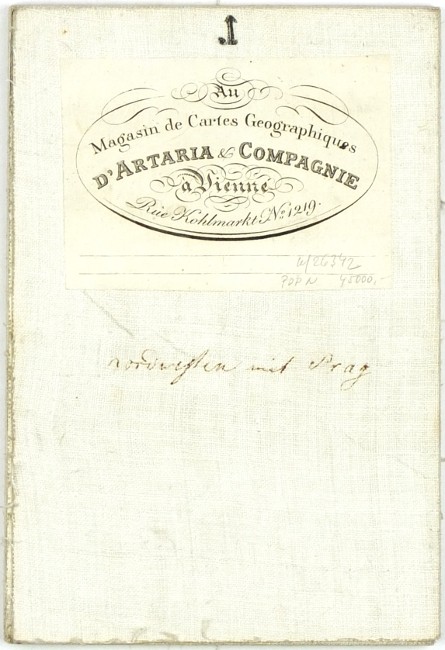 1
Au
Magasin de Cartes Geographiques
D'ARTARIA & COMPAGNIE
à Vienne
Rue Kohlmarkt No. 1219.
nordwesten mit Prag